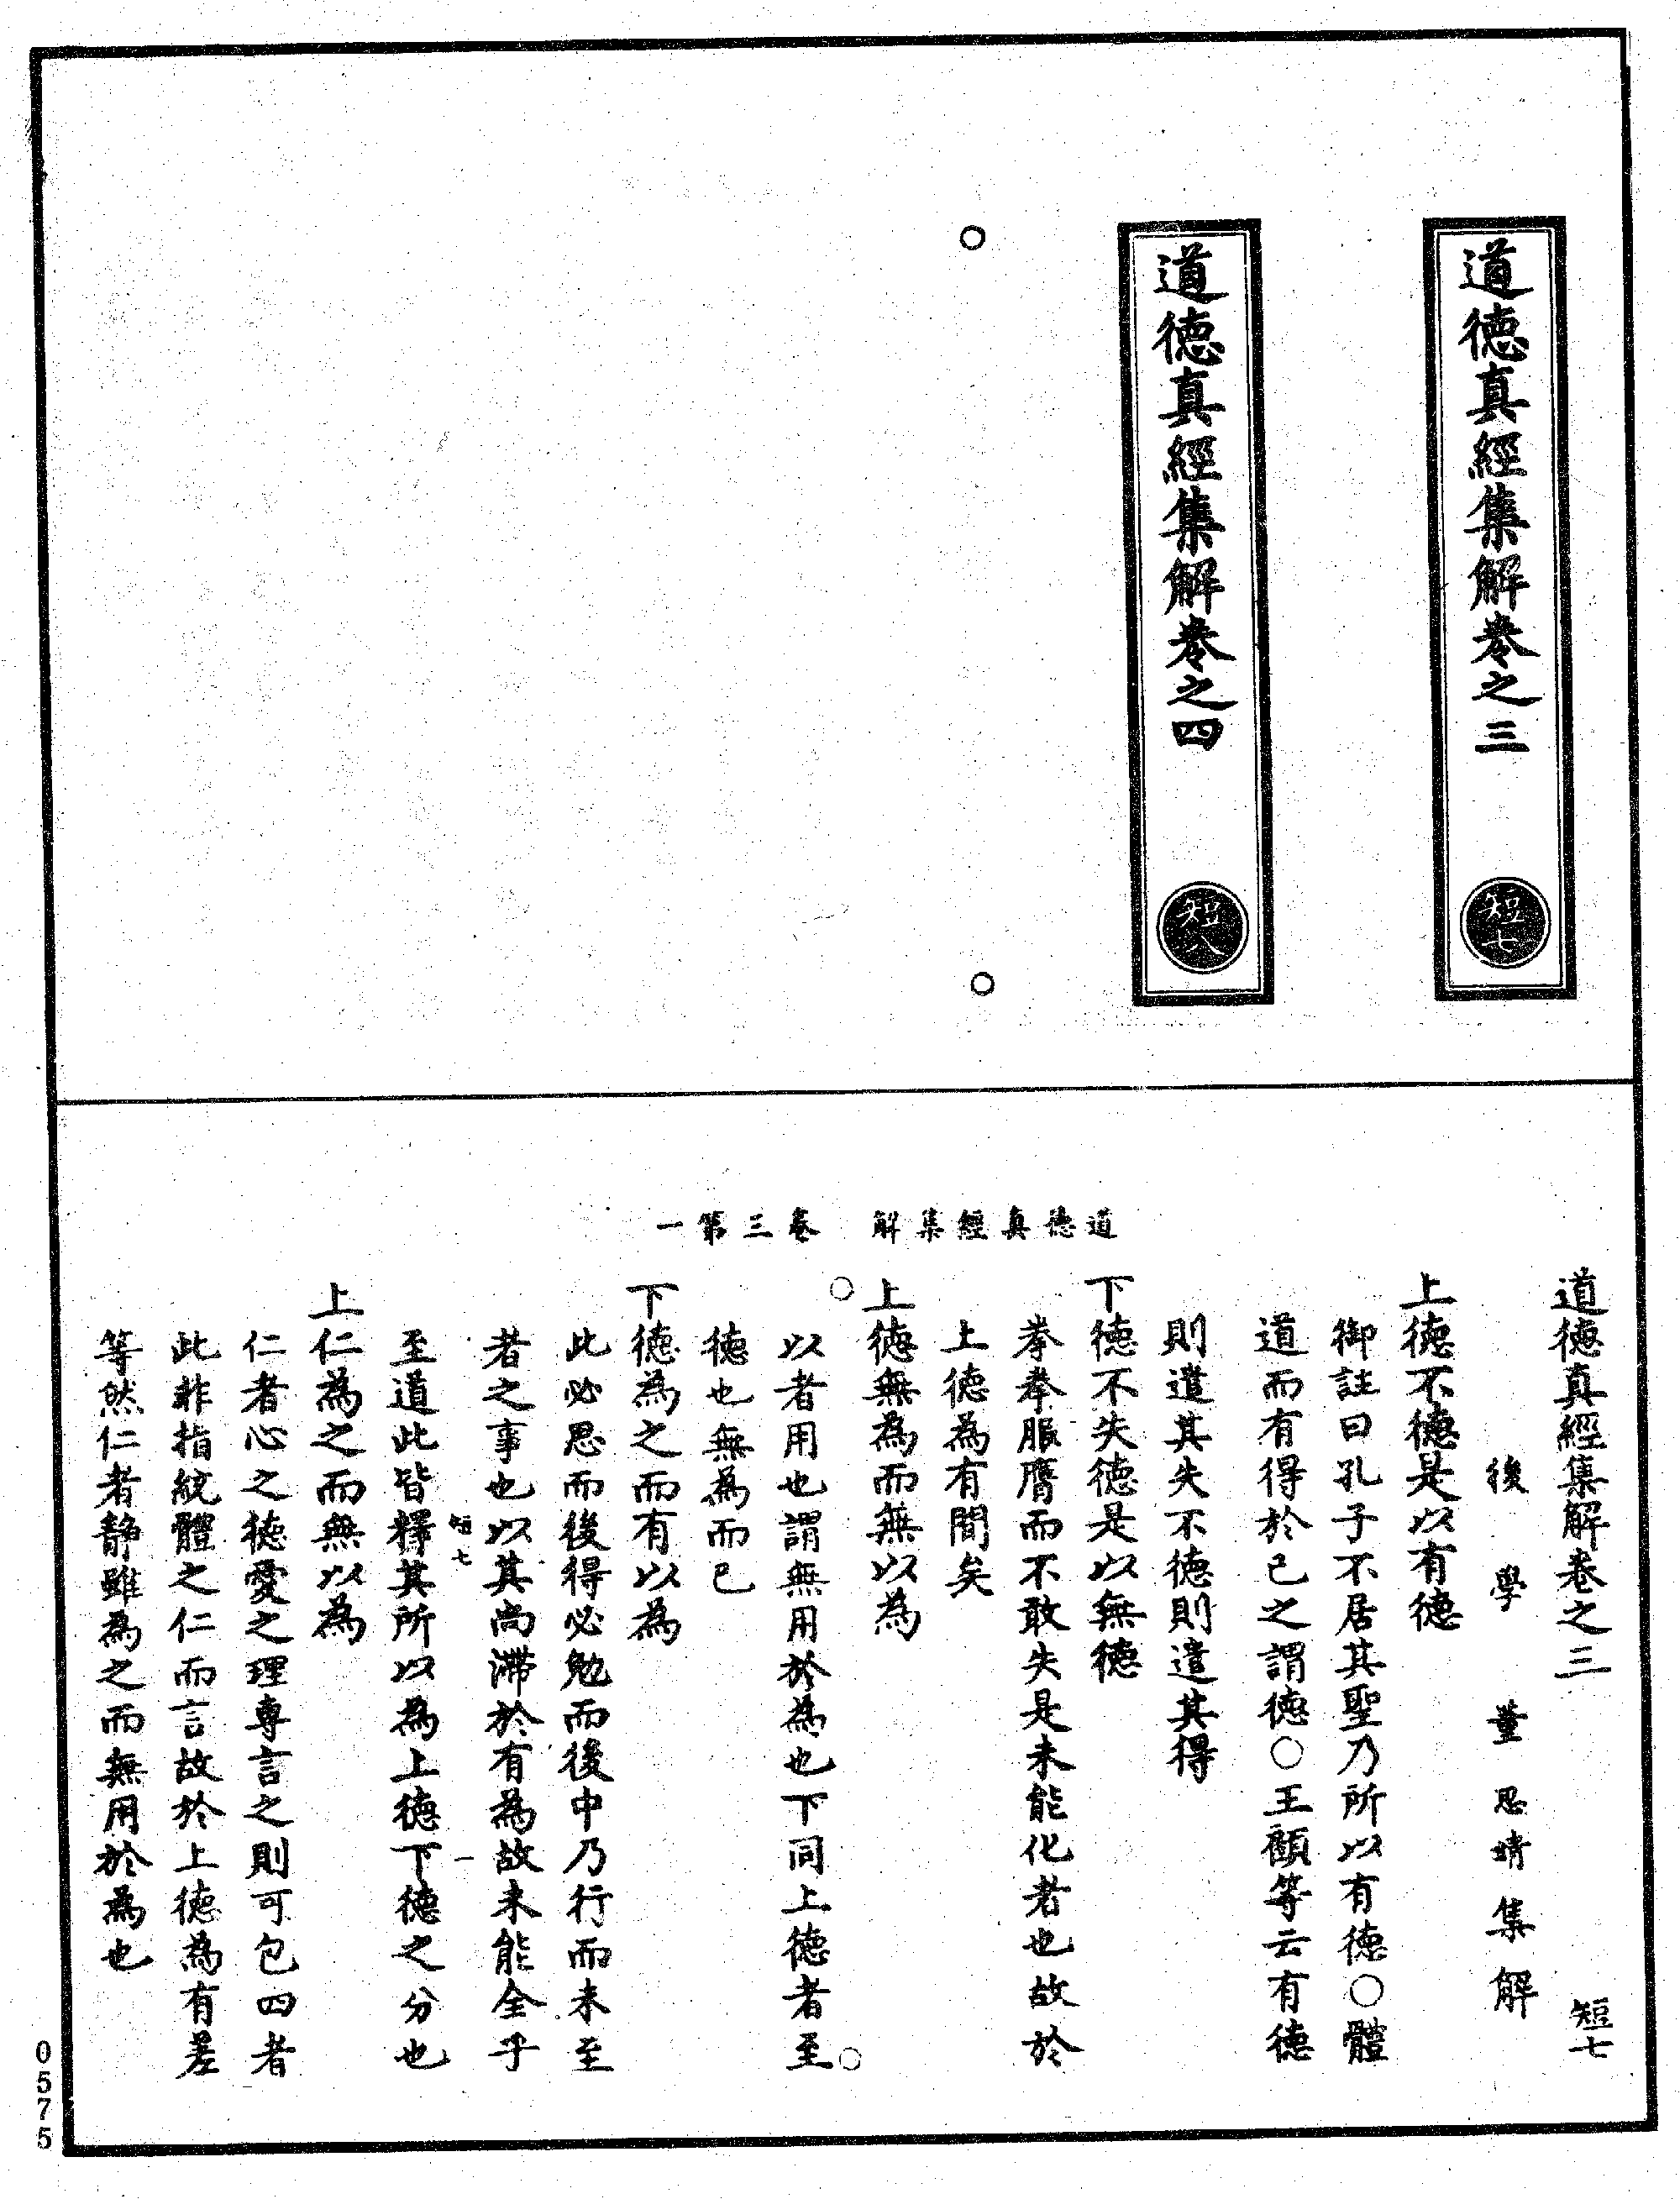 道德真經集解卷之三
短七
道德真經集解卷之四
短八
道德真經集解　卷三第一
道德真經集解卷之三　短七
後學董思靖集解
上德不德是以有德
御註曰孔子不居其聖乃所以有德○體
道而有得於己之謂德○王顧等云有德
則遣其失不德則遣其得
下德不失德是以無德
拳拳服膺而不敢失是未能化者也故於
上德為有間矣
上德無為而無以為
以者用也謂無用於為也下同上德者至
德也無為而已
下德為之而有以為
此必思而後得必勉而後中乃行而未至
者之事也以其尚滯於有為故未能全乎
短七　一
至道此皆釋其所以為上德下德之分也
上仁為之而無以為
仁者心之德愛之理專言之則可包四者
此非指統體之仁而言故於上德為有差
等然仁者靜雖為之而無用於為也
0575